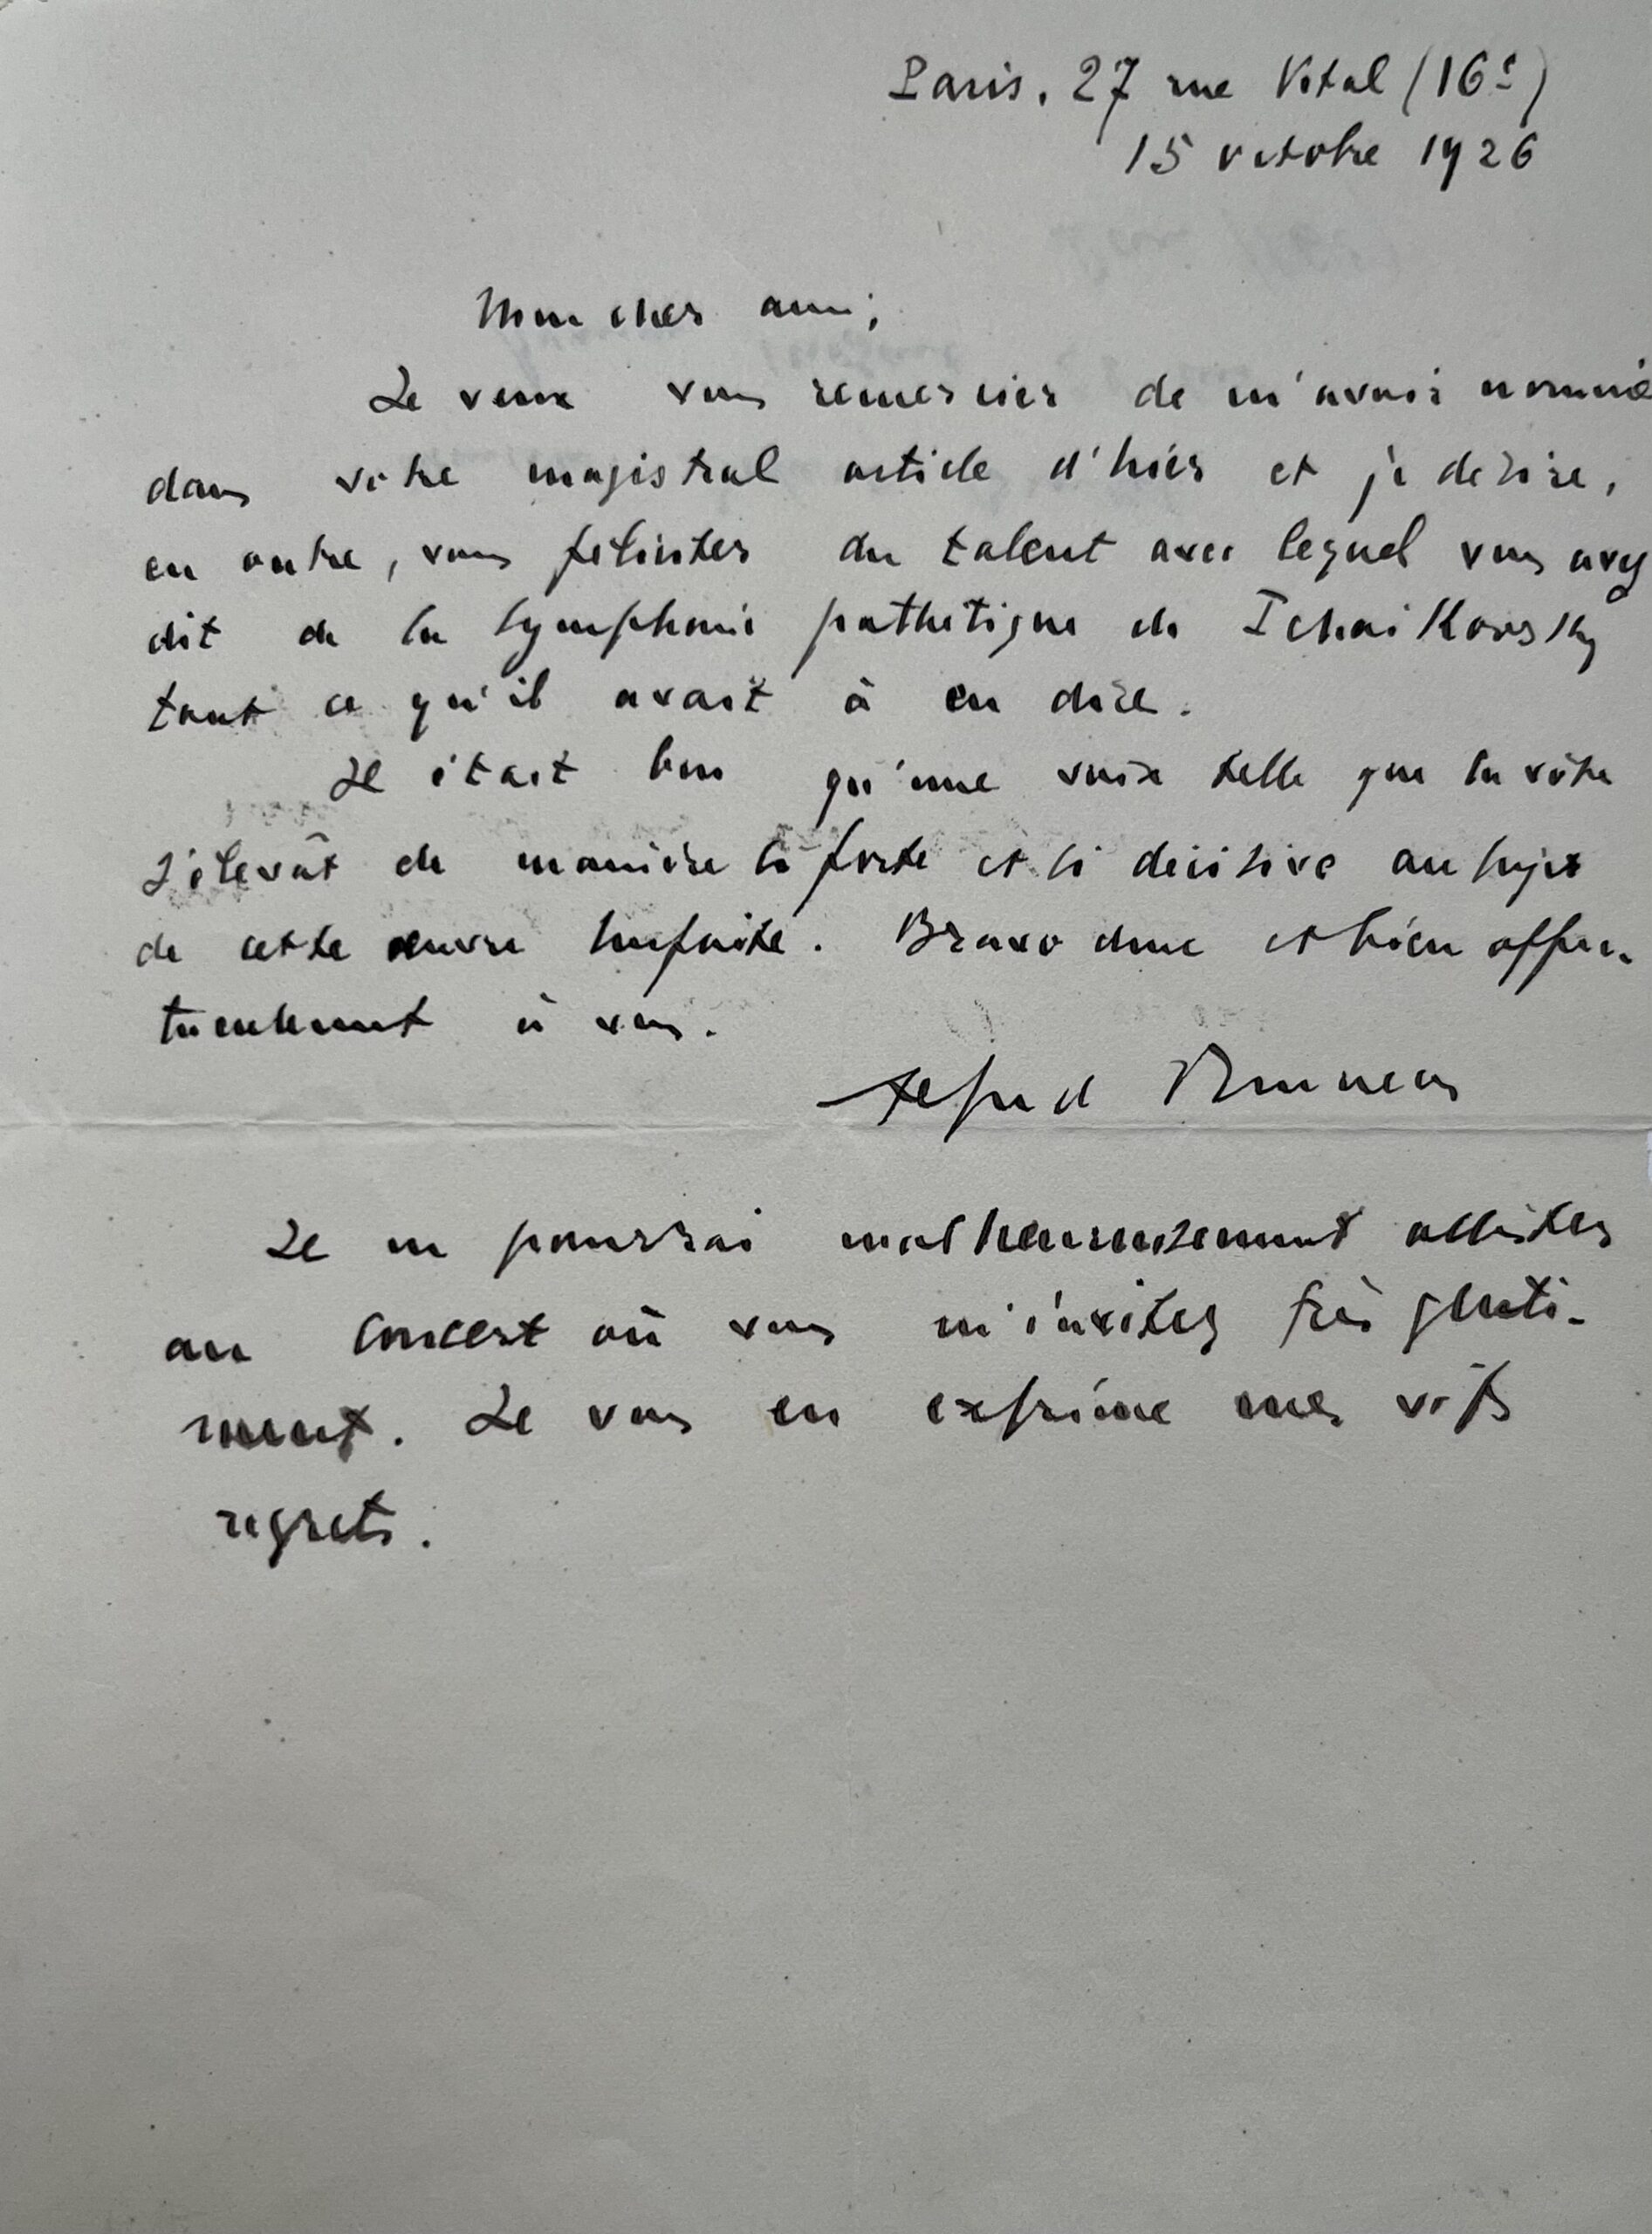 Paris. 27 rue Vital (16e)
15 octobre 1926
Mon cher ami,
Je veux vous remercier de m'avoir nommé
dans votre magistral article d'hier et je désire,
en outre, vous féliciter du talent avec lequel vous avez
dit de la symphonie pathétique de Tchaikovsky
tout ce qu'il avait à en dire.
Il était bon qu'une voix telle que la vôtre
s'élevât de manière si forte et si décisive au sujet
de cette œuvre surfaite. Bravo donc et bien affec-
tueusement à vous.
Alfred Bruneau
Je ne pourrai malheureusement assister
au concert où vous m'invitez très genti-
ment. Je vous en exprime mes vifs
regrets.